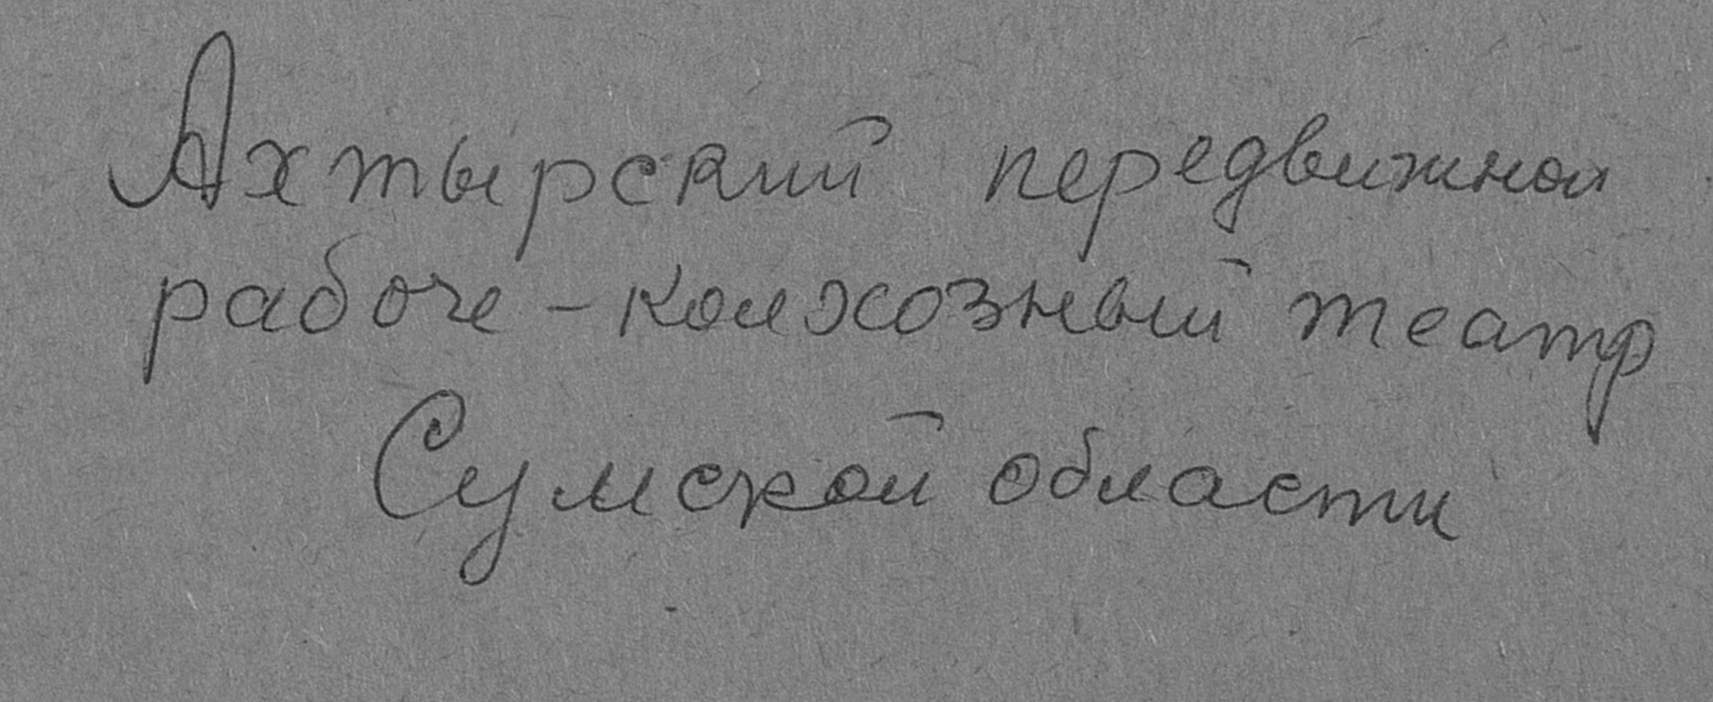 Ахтырский передвижной
рабоче-колхозный театр
Сумской области